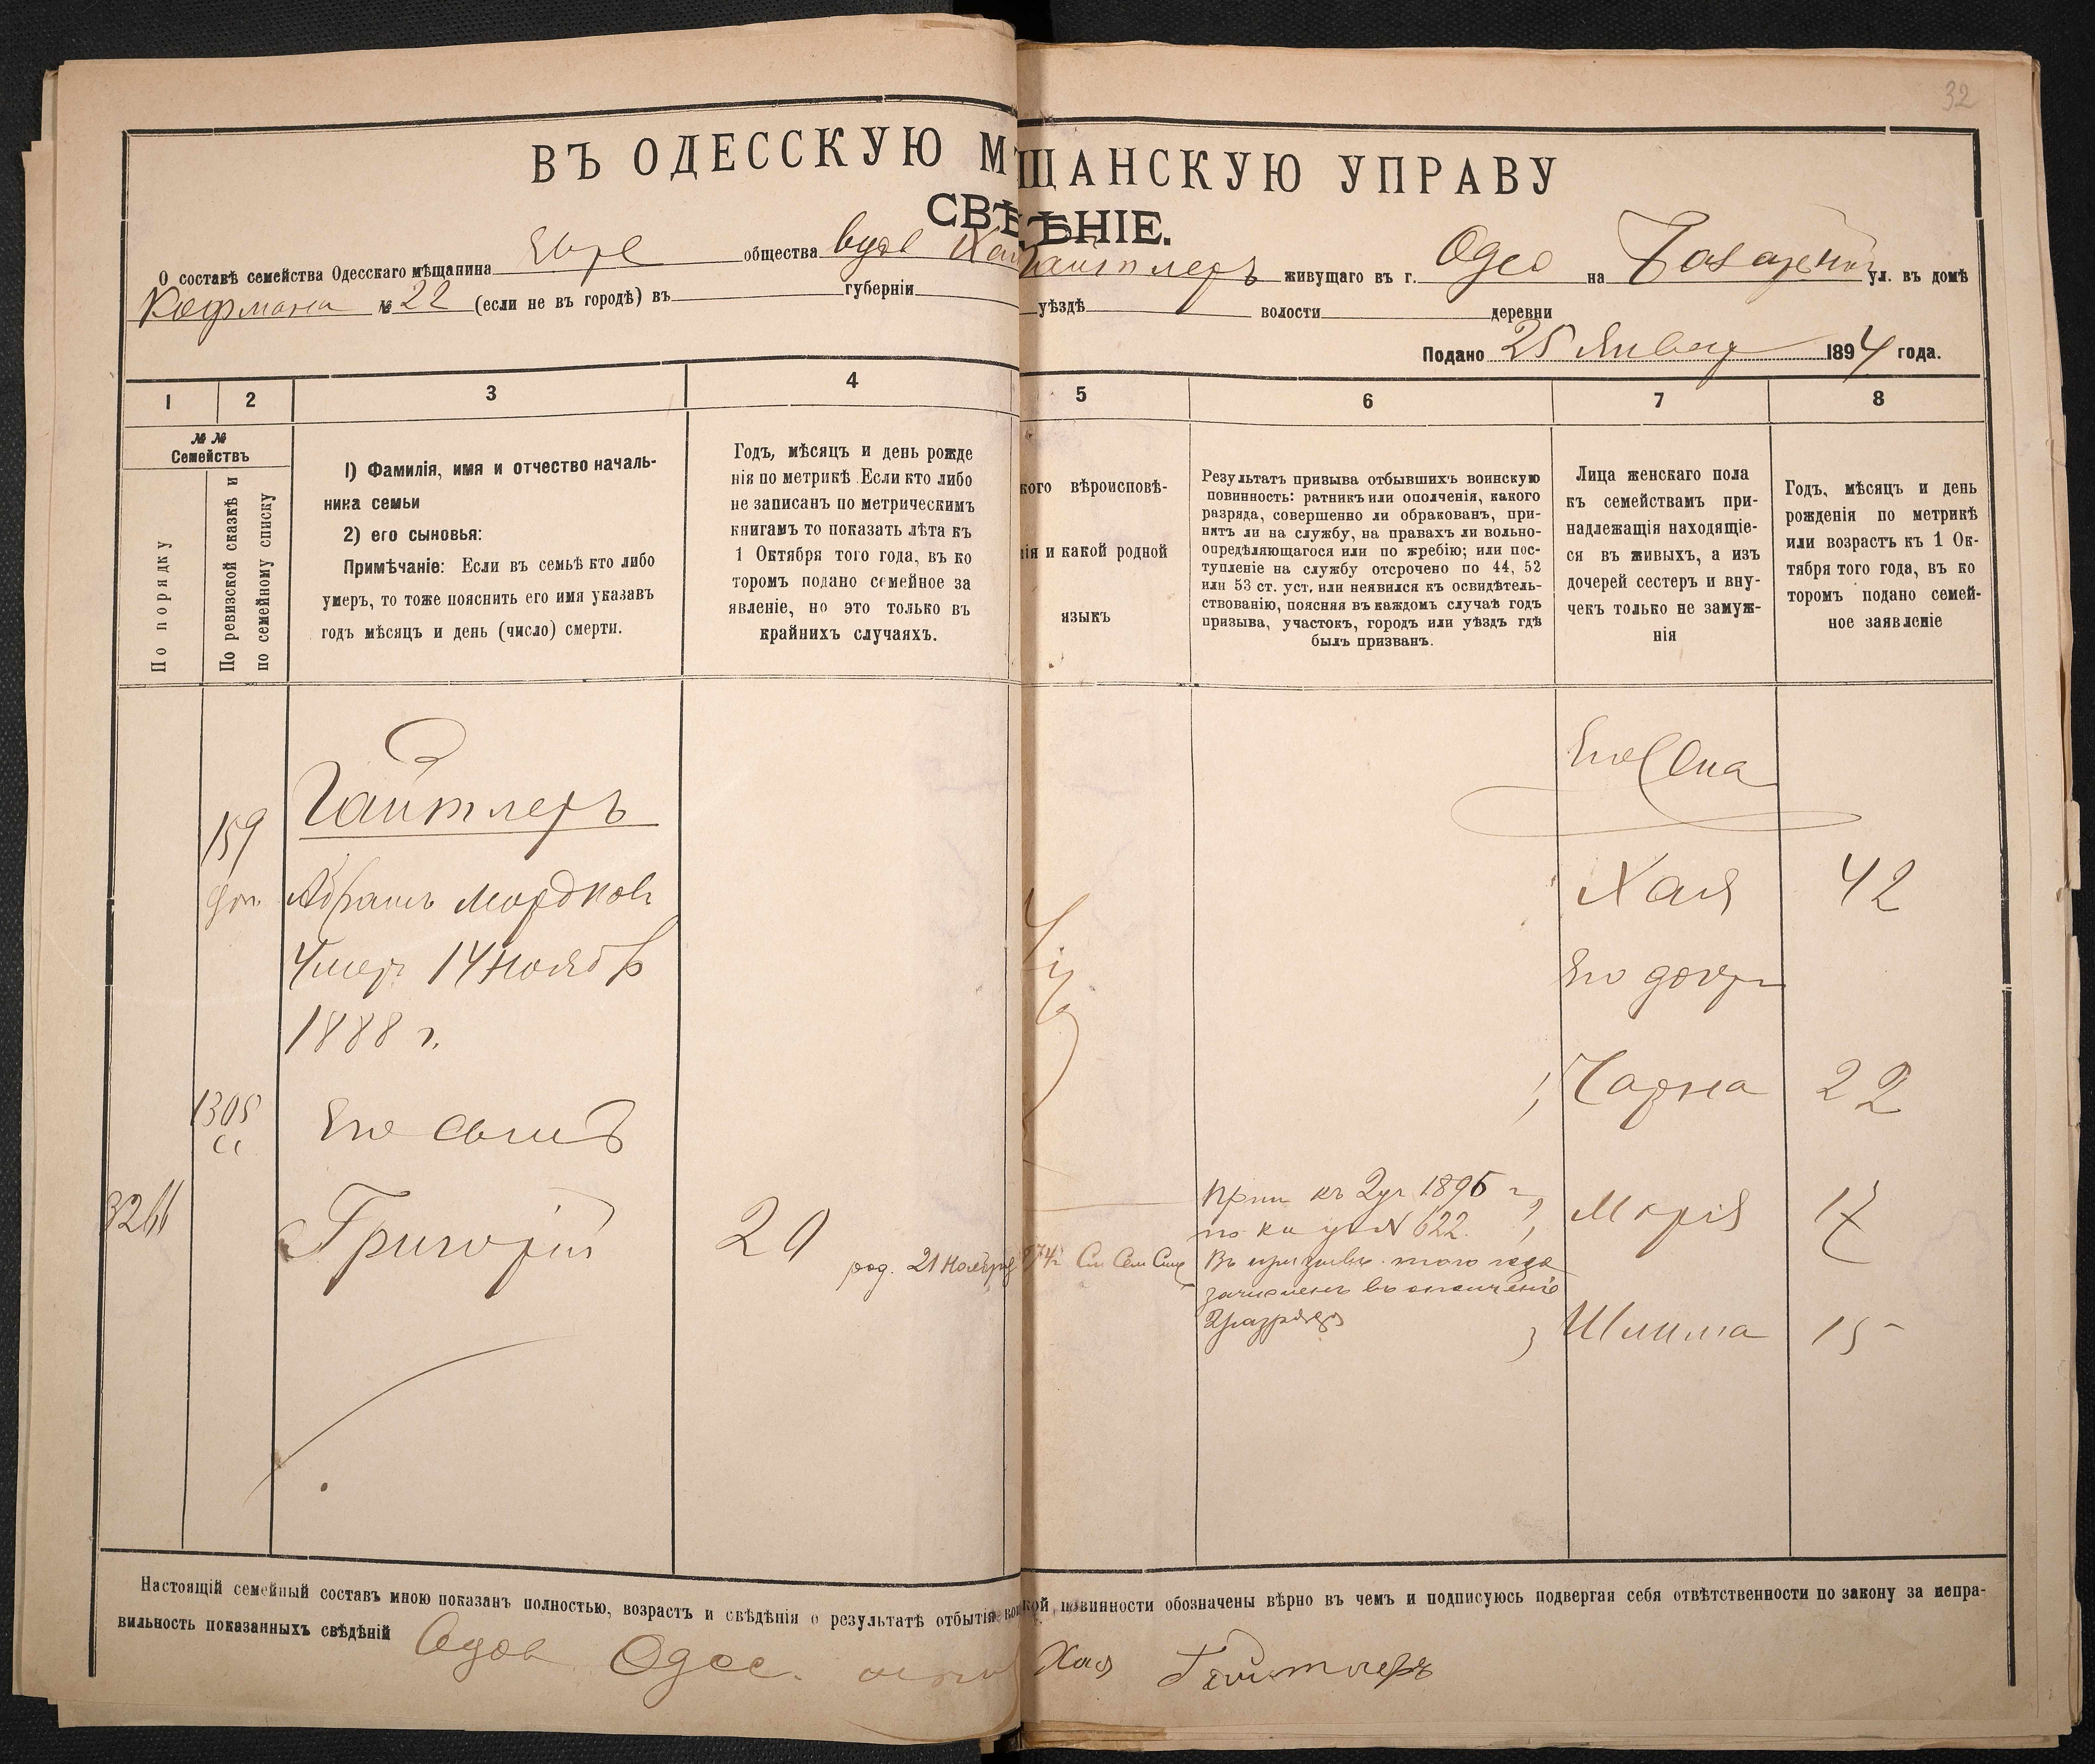 32
ВЪ ОДЕССКУЮ МѢЩАНСКУЮ УПРАВУ
СВѢДѢНІЕ.
О составѣ семейства Одесскаго мѣщанина Евре общества вдов Хаи Гайтлеръ живущаго въ г. Одес на Базарной ул. въ домѣ
Кофмана № 22 (если не въ городѣ) въ губерніи уѣздѣ волости деревни
Подано 25 Январ 1894 года.
1 2 3 4 5 6 7 8
№ №
Семействъ
По порядку
По ревизской сказкѣ и
по семейному списку
1) Фамилія, имя и отчество началь-
ника семьи
2) его сыновья:
Примѣчаніе: Если въ семьѣ кто либо
умеръ, то тоже пояснить его имя указавъ
годъ мѣсяцъ и день (число) смерти.
Годъ, мѣсяцъ и день рожде
нія по метрикѣ. Если кто либо
не записанъ по метрическимъ
книгамъ то показать лѣта къ
1 Октября того года, въ ко
торомъ подано семейное за
явленіе, но это только въ
крайнихъ случаяхъ.
кого вѣроисповѣ-
нія и какой родной
языкъ
Результатъ призыва отбывшихъ воинскую
повинность: ратникъ или ополченія, какого
разряда, совершенно ли обракованъ, при-
нятъ ли на службу, на правахъ ли вольно-
опредѣляющагося или по жребію; или пос-
тупленіе на службу отсрочено по 44, 52
или 53 ст. уст. или неявился къ освидѣтель-
ствованію, поясняя въ каждомъ случаѣ годъ
призыва, участокъ, городъ или уѣздъ гдѣ
былъ призванъ.
Лица женскаго пола
къ семействамъ при-
надлежащія находящіе-
ся въ живыхъ, а изъ
дочерей сестеръ и вну-
чекъ только не замуж-
нія
Годъ, мѣсяцъ и день
рожденія по метрикѣ
или возрастъ къ 1 Ок-
тября того года, въ ко
торомъ подано семей-
ное заявленіе
159
доп
Гайтлеръ
Абрамъ Мордков
Умер. 14 Ноябр
1888 г.
1305
сс
Его сынъ
Григорій
20
род. 21 Ноября 874 г. См Сем Спис
Прип къ 2 уч 1895 г
N 622.
Въ призывѣ того года
зачисленъ въ ополченіе
2 разряда
Его
Хая 42
Его дочери
1, Чарна 22
2, Марія 17
3 Шлима 15
Настоящій семейный составъ мною показанъ полностью, возрастъ и свѣдѣнія о результатѣ отбытія воинской повинности обозначены вѣрно въ чемъ и подписуюсь подвергая себя отвѣтственности по закону за непра-
вильность показанныхъ свѣдѣній Вдов Одес. Хая Гайтлеръ